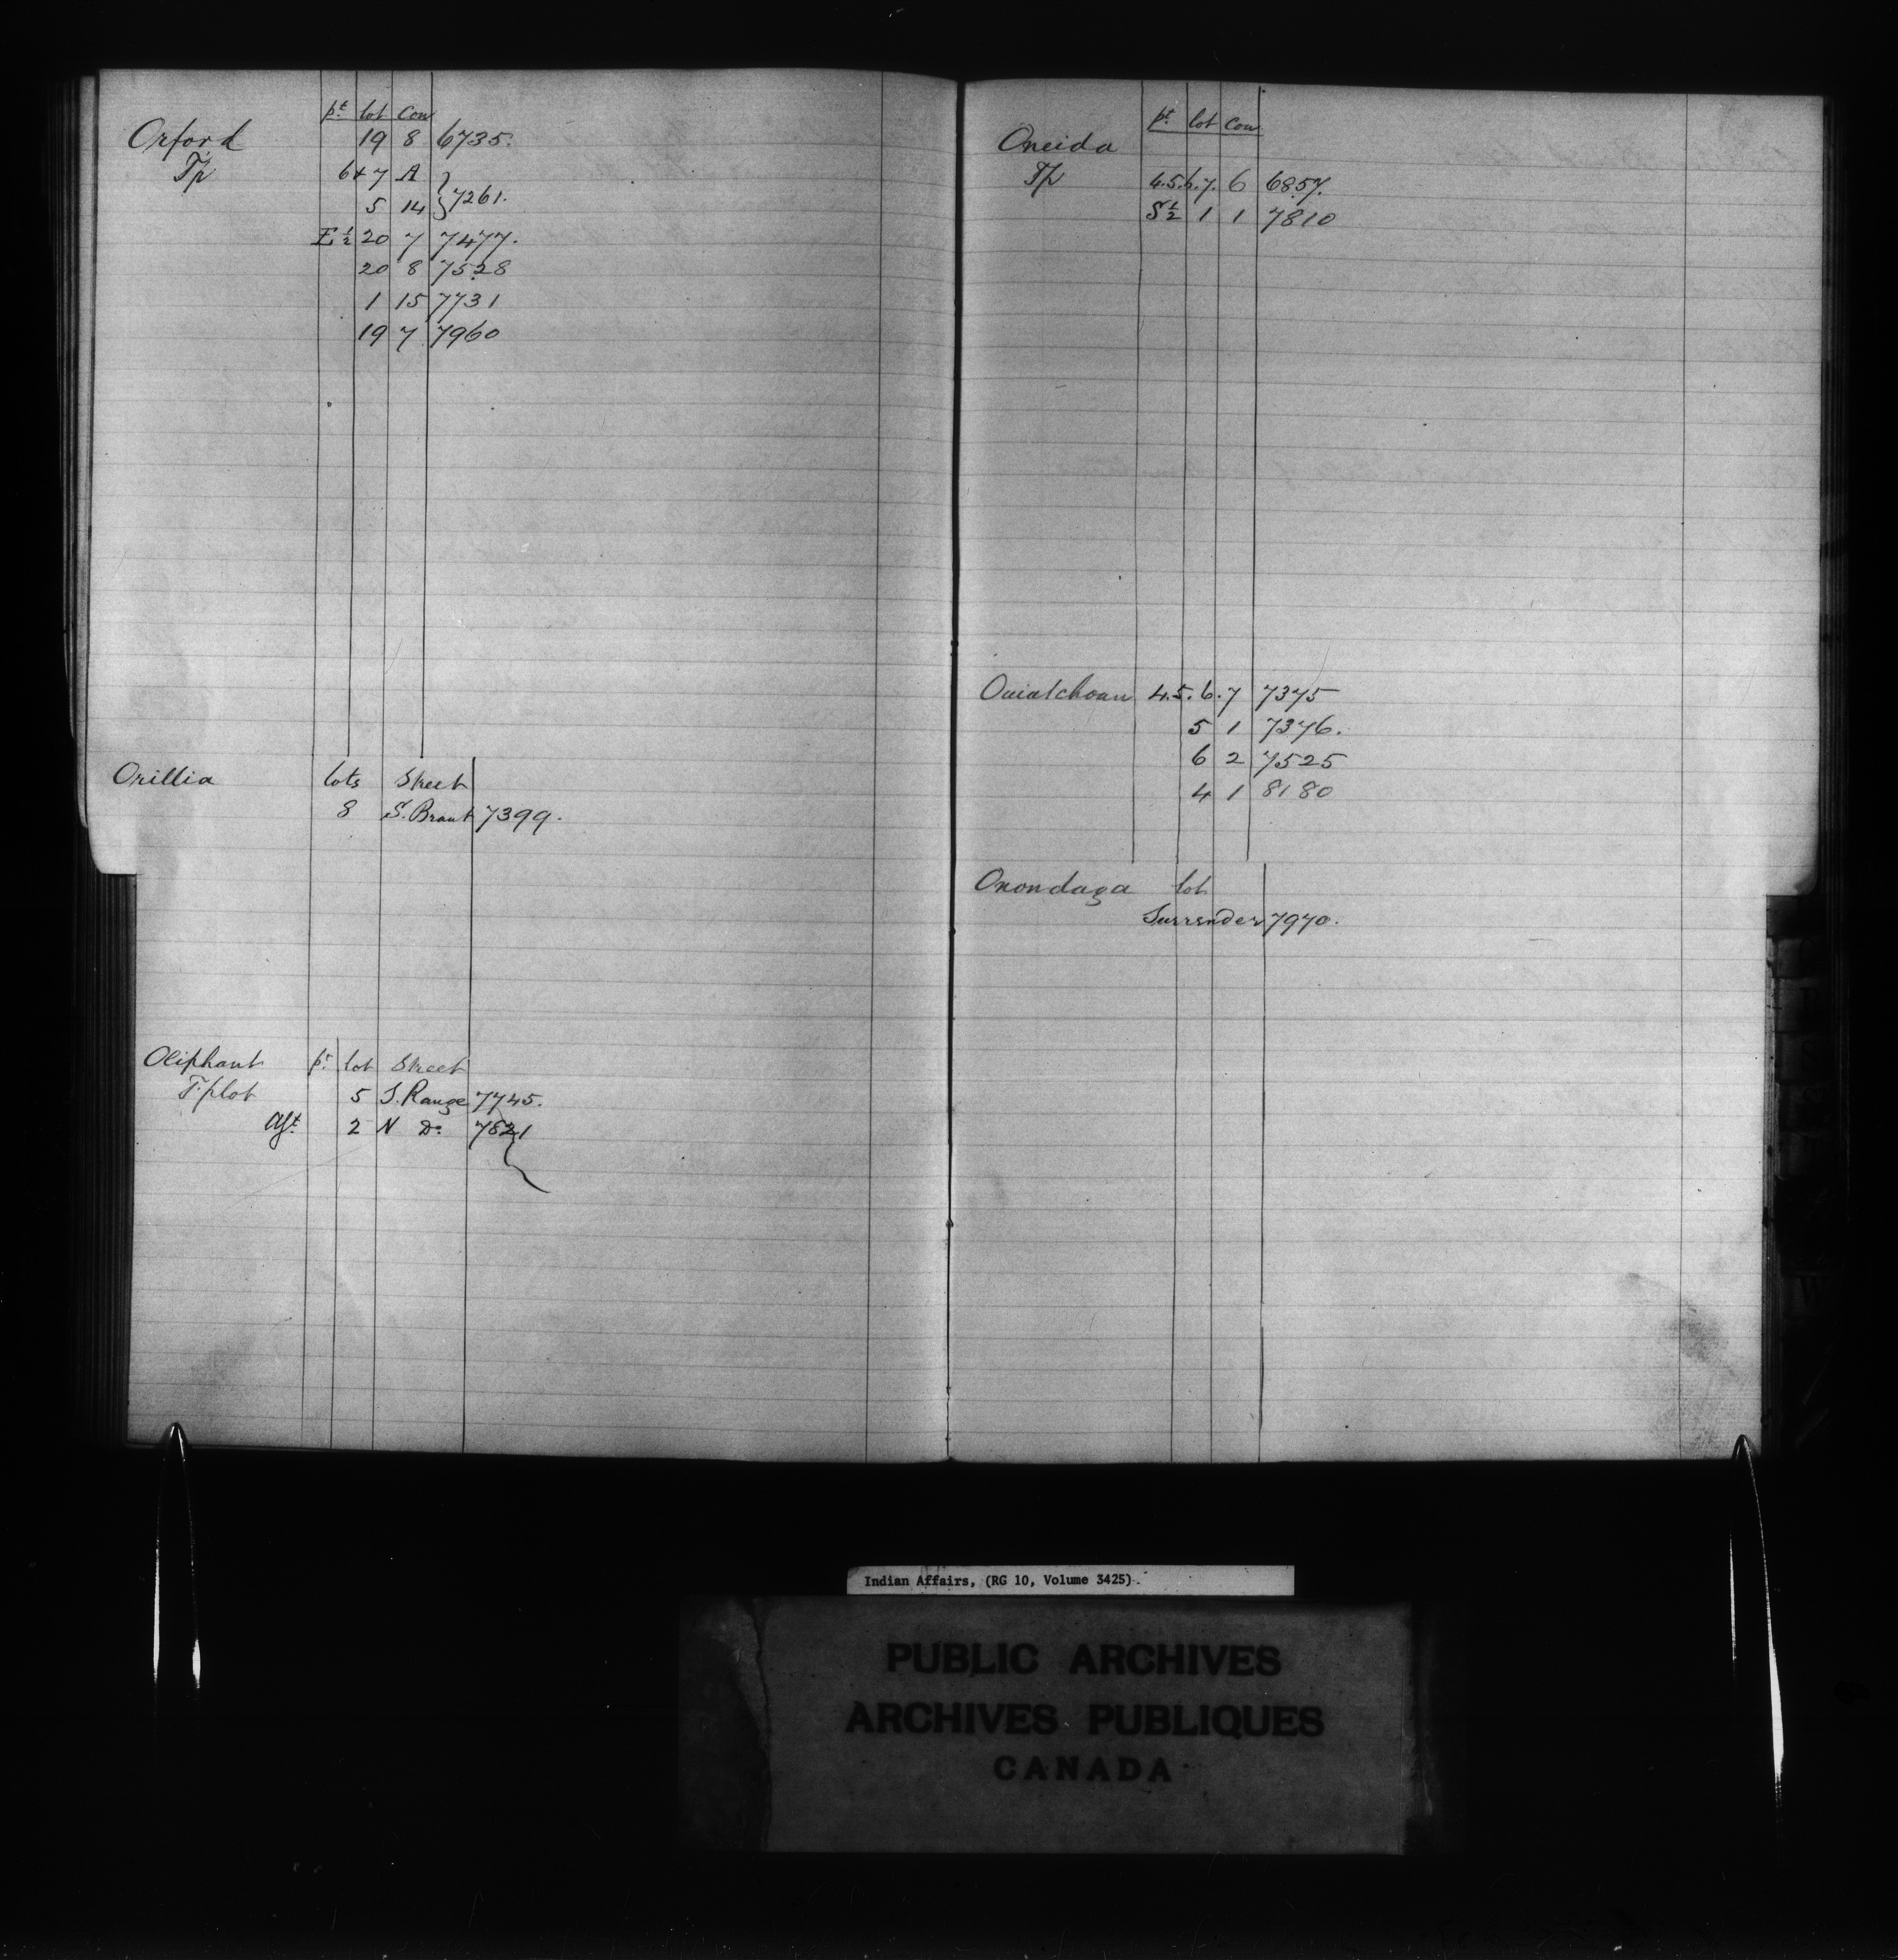 pt lot Con
Orford 19 8 6735.
Tp 6+7 A
5 14 } 7261.
E ½ 20 7 7477.
20 8 7528
1 15 7731
19 7 7960
Orillia lots Street
8 S. Brant 7399.
Oliphant pt lot Street
T. plot 5 S. Range 7745.
Agt 2 N Do 7821
pt lot Con
Oneida
Tp 4.5.6.7. 6 6857.
S ½ 1 1 7810
Ouiatchouan 4.5.6.7 7375
5 1 7376.
6 2 7525
4 1 8180
Onondaga lot
Surrender 7970.
Indian Affairs, (RG 10, Volume 3425).
PUBLIC ARCHIVES
ARCHIVES PUBLIQUES
CANADA